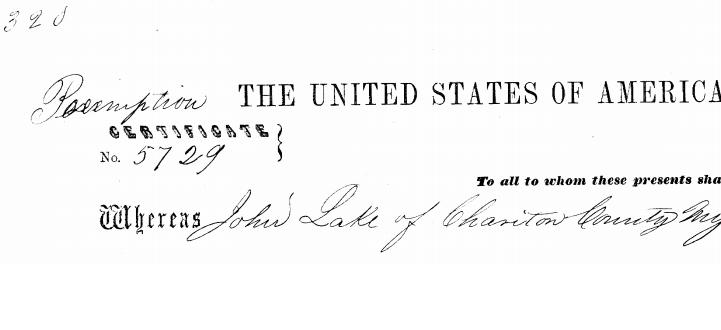 320
Preemption THE UNITED STATES OF AMERICA
CERTIFICATE
No. 5729
To all to whom these presents sha
Whereas John Lake of Chariton County